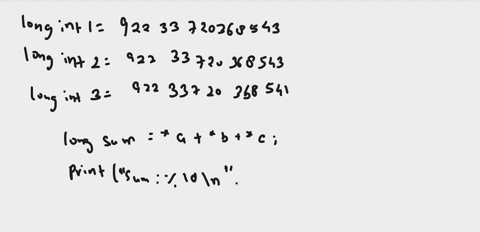 long int 1 = 922 33 720268543
long int 2 = 922 33720 368543
long int 3 = 922 337 20 368 541
long sum = *a + *b + *c ;
Print ("Sum : % 10 \n".